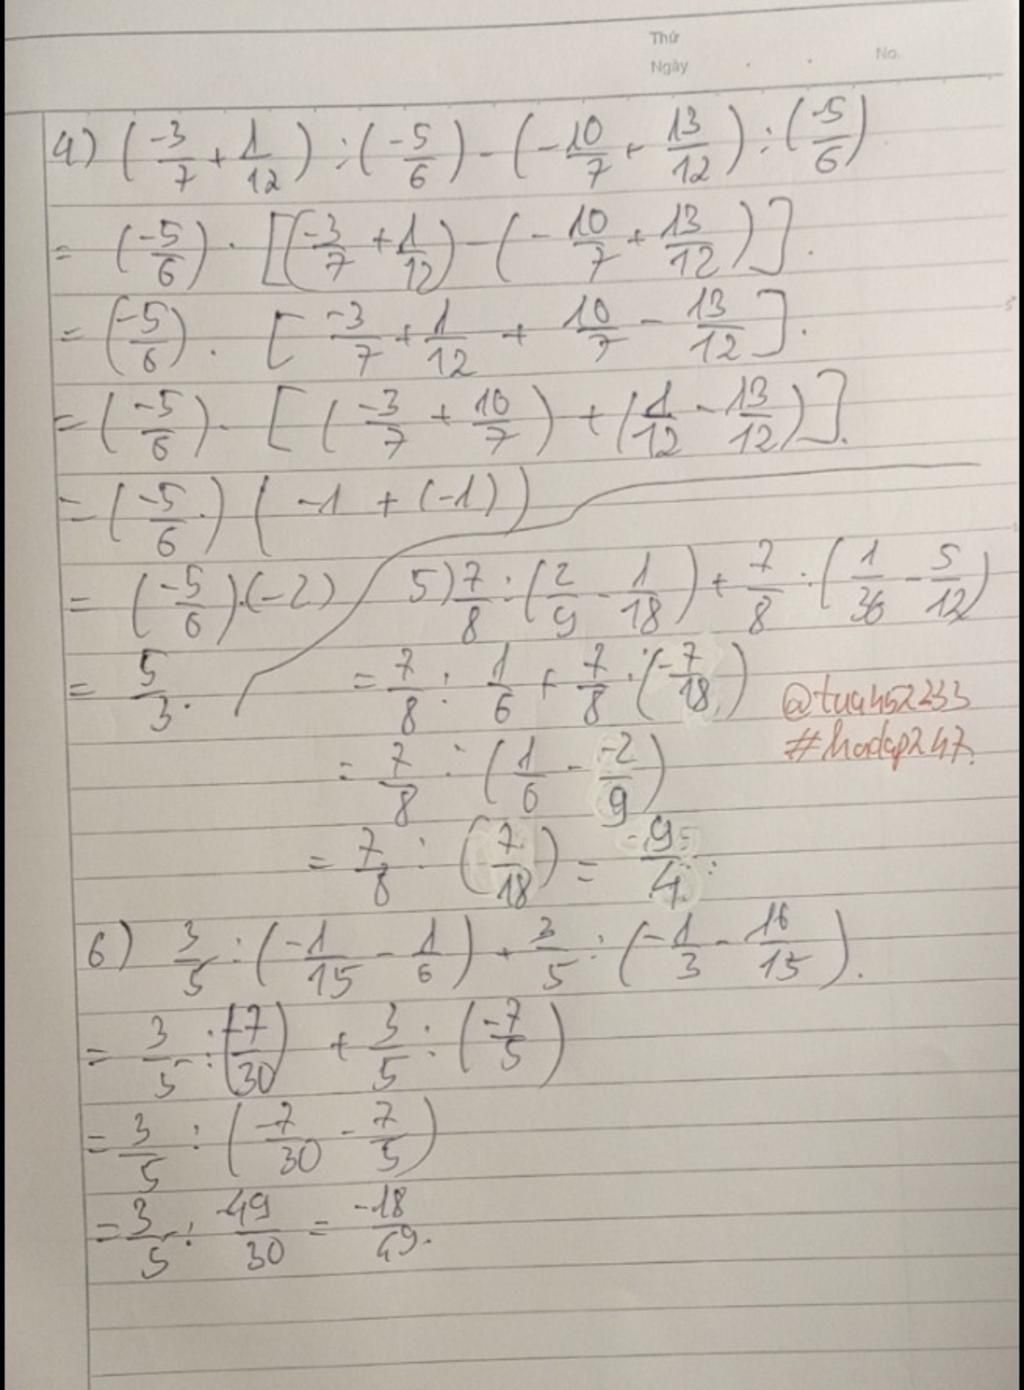 Thứ
Ngày No.
4) (-3/7 + 1/12) : (-5/6) - (-10/7 + 13/12) : (-5/6)
= (-5/6) . [(-3/7 + 1/12) - (-10/7 + 13/12)].
= (-5/6) . [-3/7 + 1/12 + 10/7 - 13/12].
= (-5/6) . [(-3/7 + 10/7) + (1/12 - 13/12)].
= (-5/6.) (-1 + (-1))
= (-5/6).(-2)
= 5/3.
5) 7/8 : (2/9 - 1/18) + 7/8 : (1/36 - 5/12)
= 7/8 : 1/6 + 7/8 : (-7/18)
= 7/8 : (1/6 - -2/9)
= 7/8 : (7/18) = -9/4.
@tua452233
#hoidap247.
6) 3/5 : (-1/15 - 1/6) + 3/5 : (-1/3 - 16/15).
= 3/5 : (-7/30) + 3/5 : (-7/5)
= 3/5 : (-7/30 - 7/5)
= 3/5 : -49/30 = -18/49.